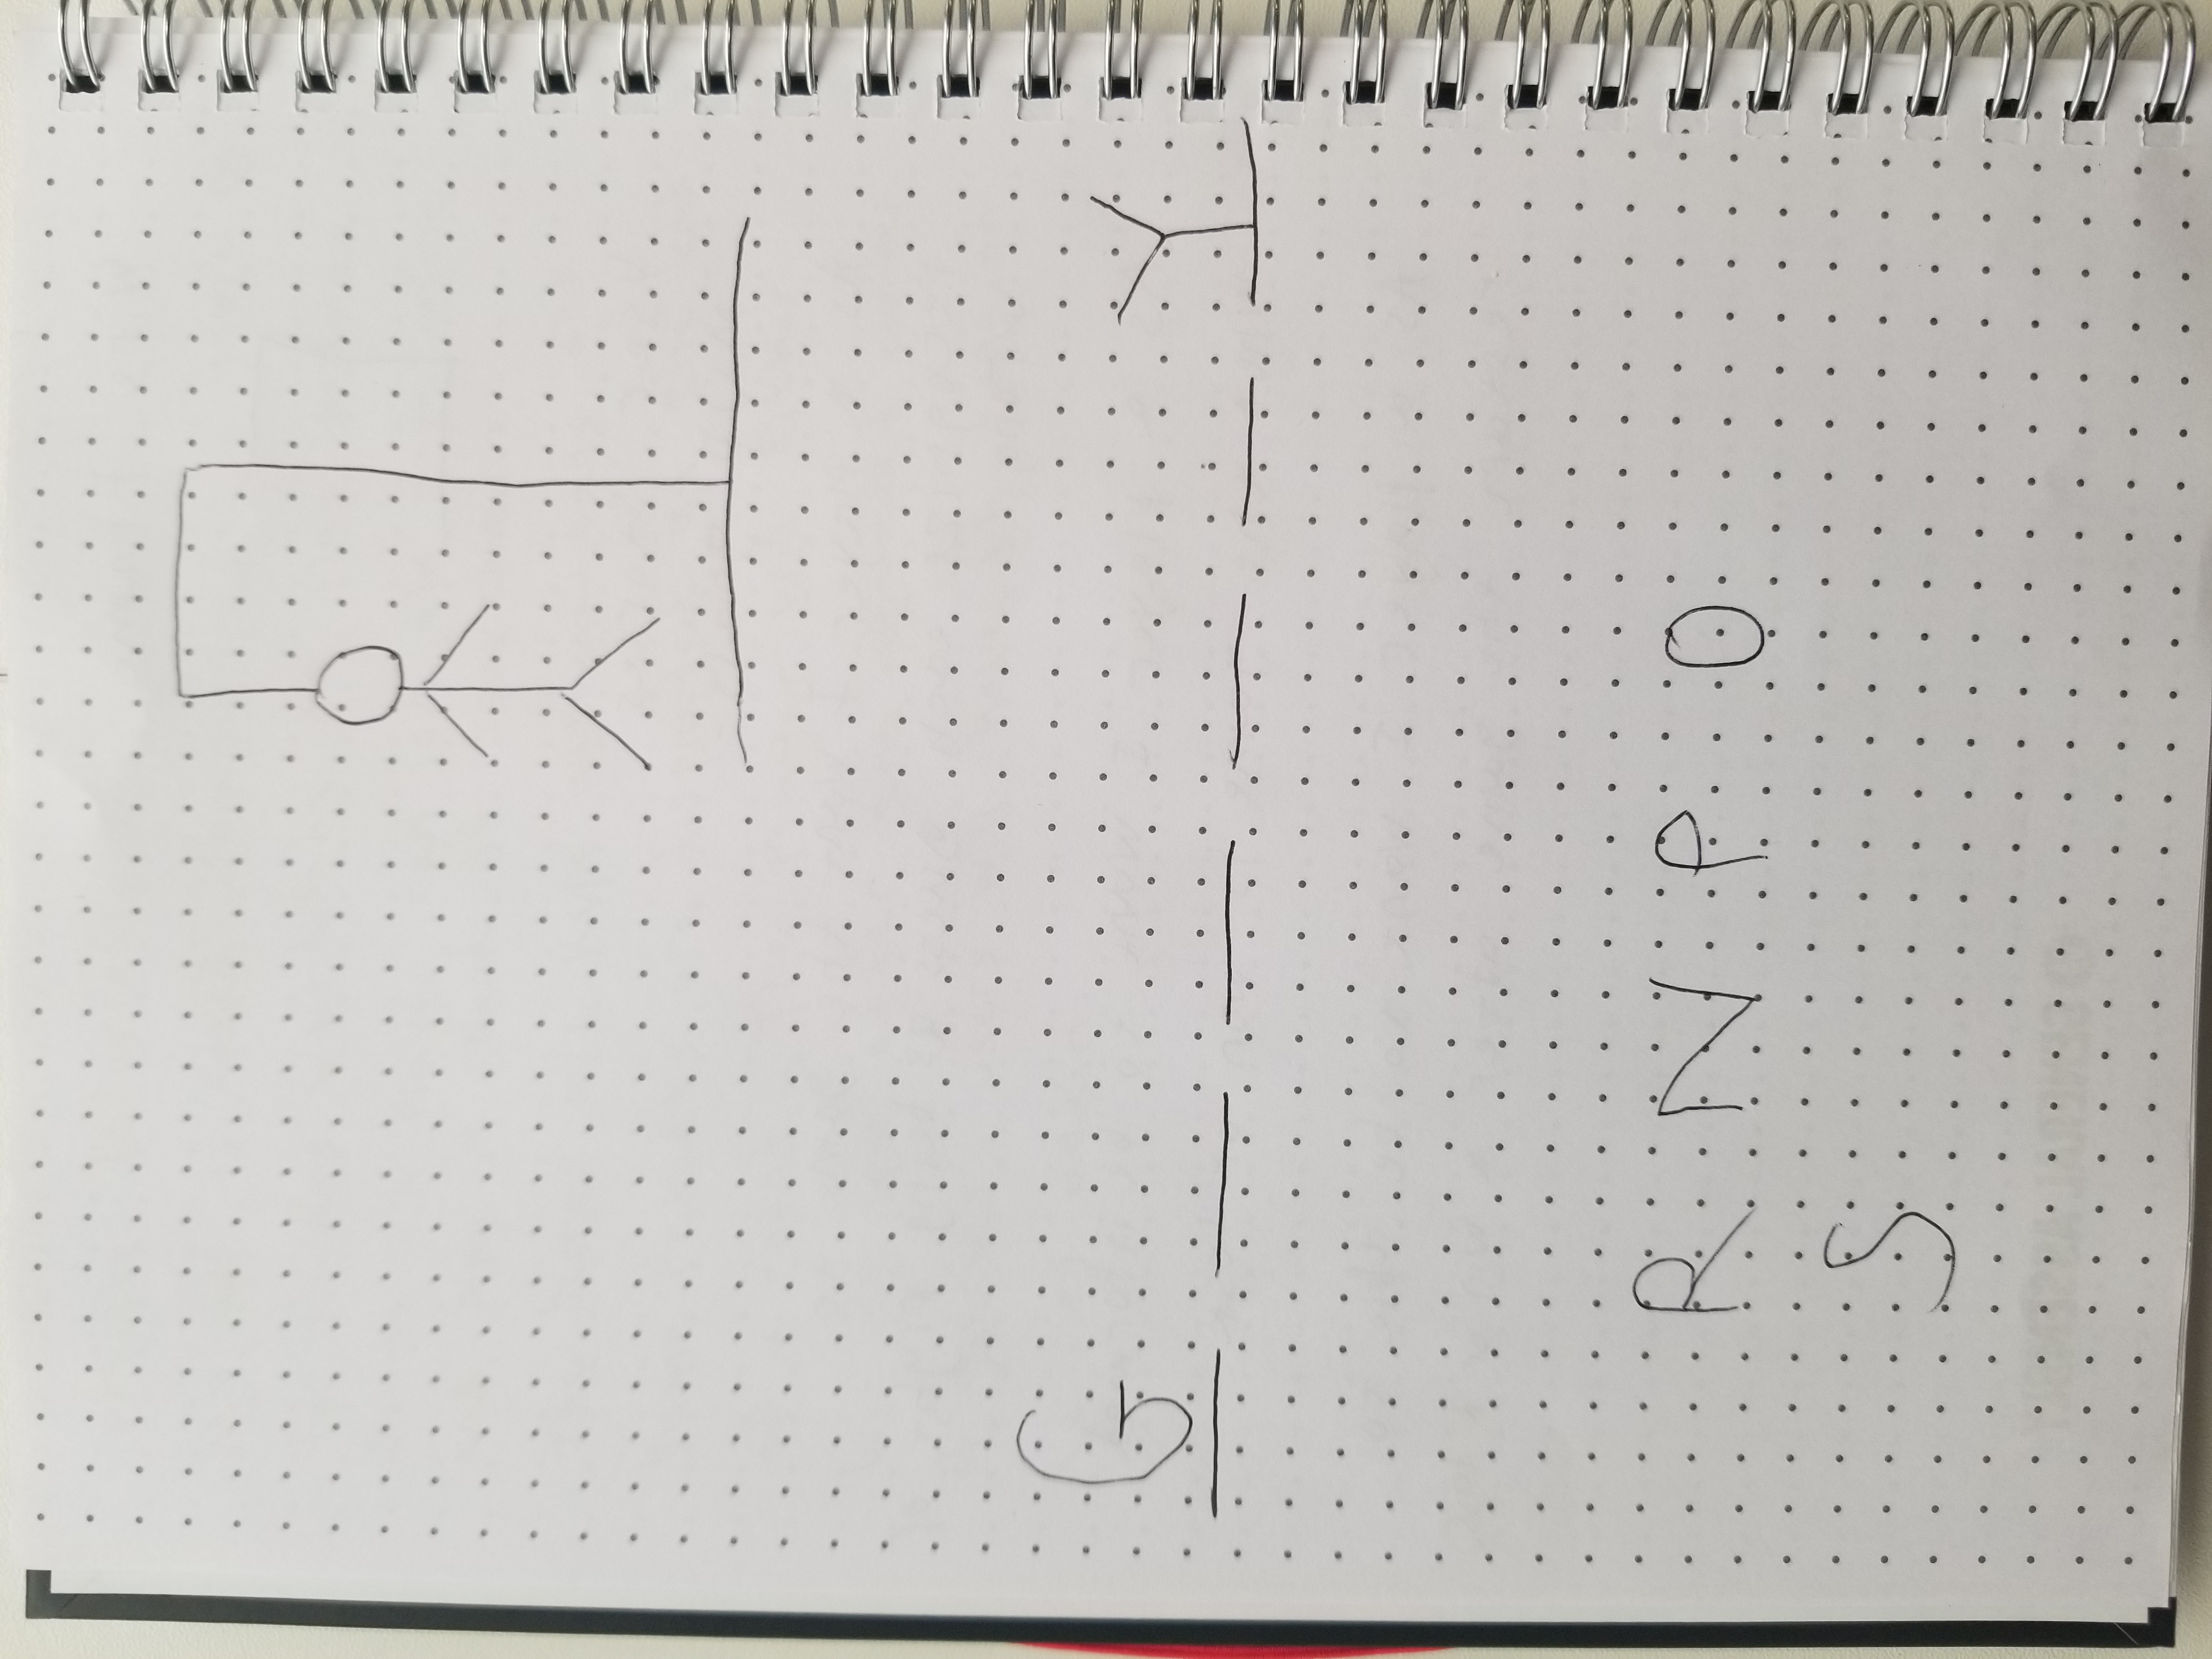 G _ _ _ _ Y
R N P O
S